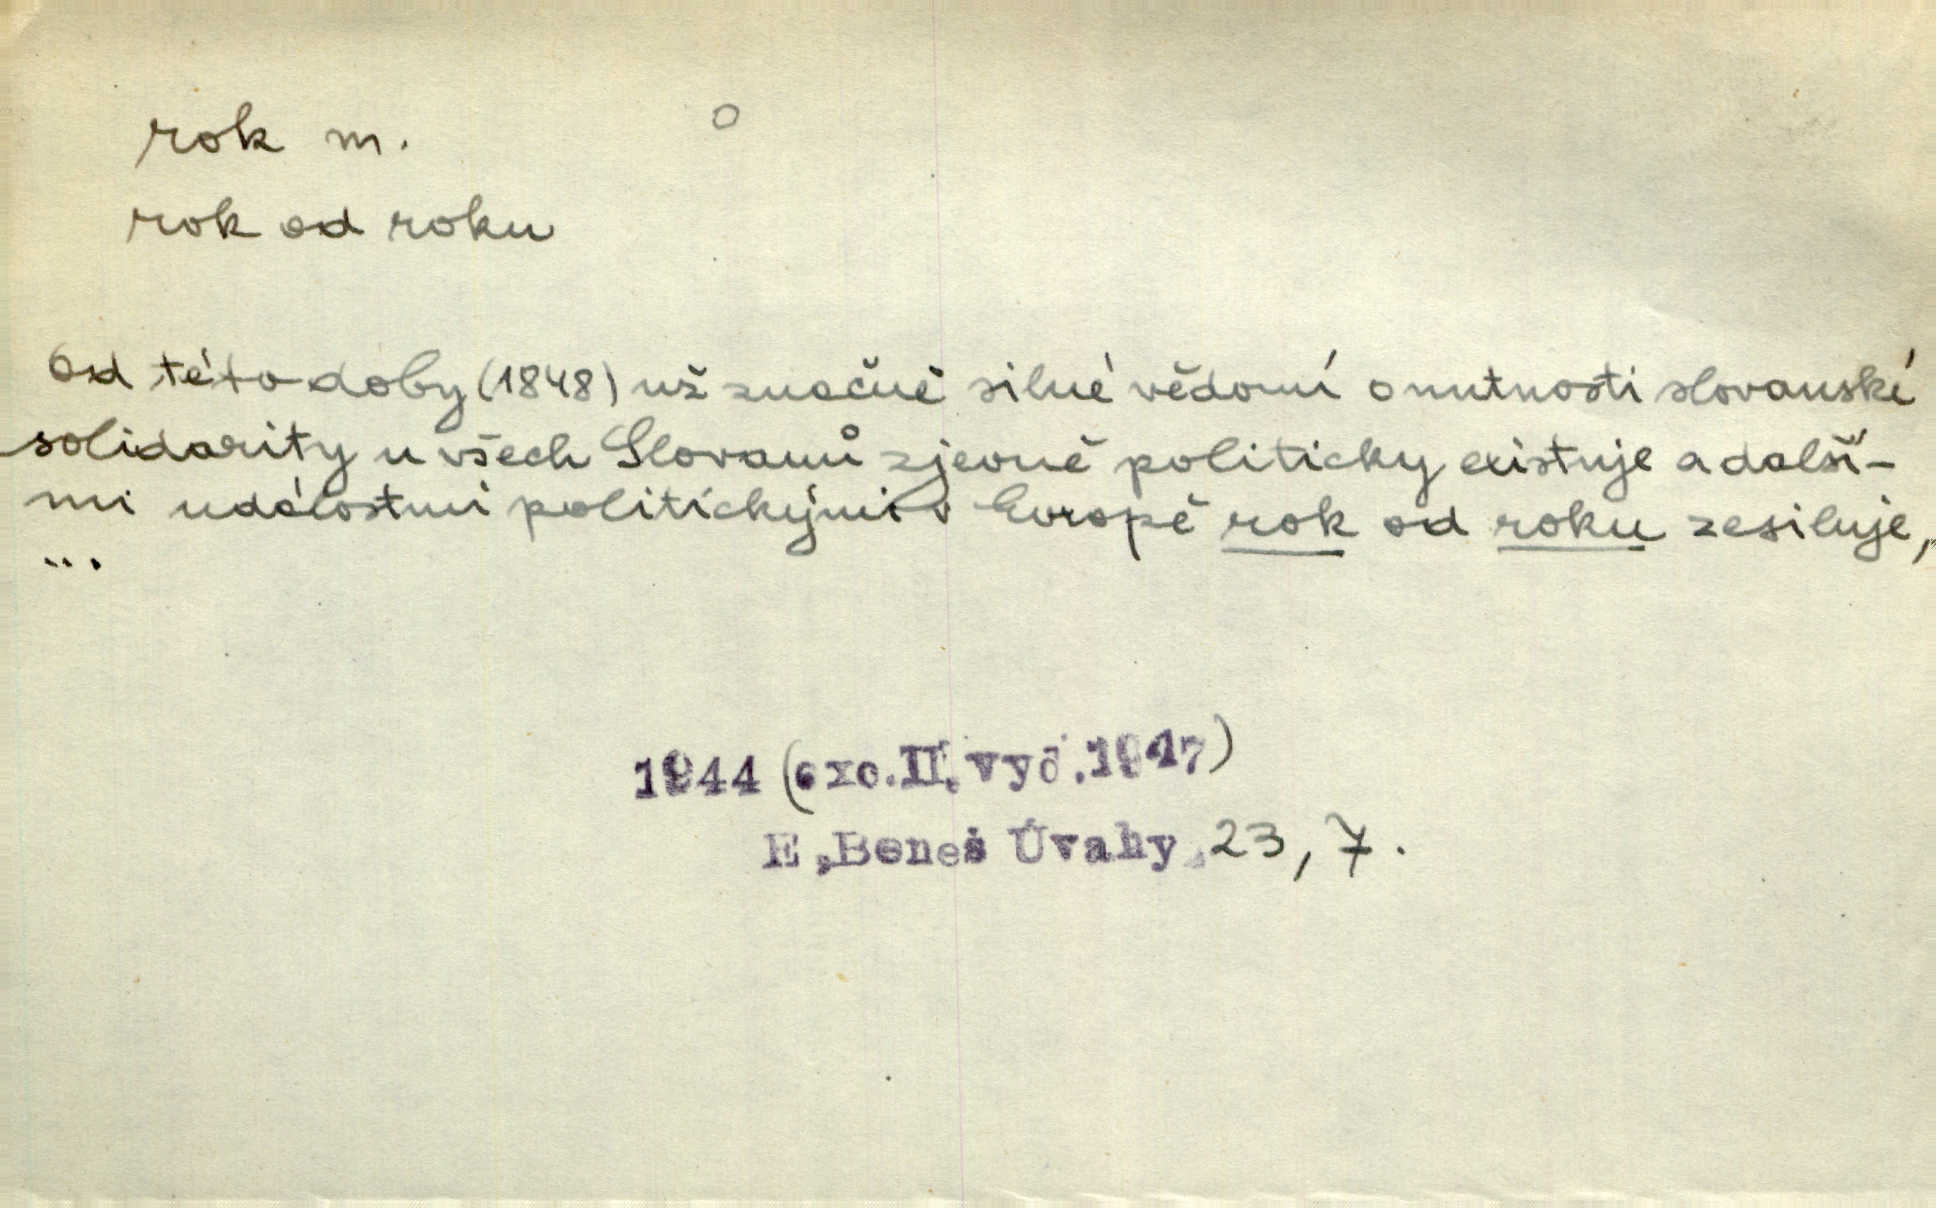 rok m.
rok od roku
Od této doby (1848) už značně silné vědomí o nutnosti slovanské
solidarity u všech Slovanů zjevně politicky existuje a další-
mi událostmi politickými v Evropě rok od roku zesiluje,
...
1944 (exc. II. vyd. 1947)
E. Beneš Úvahy 23, 7.